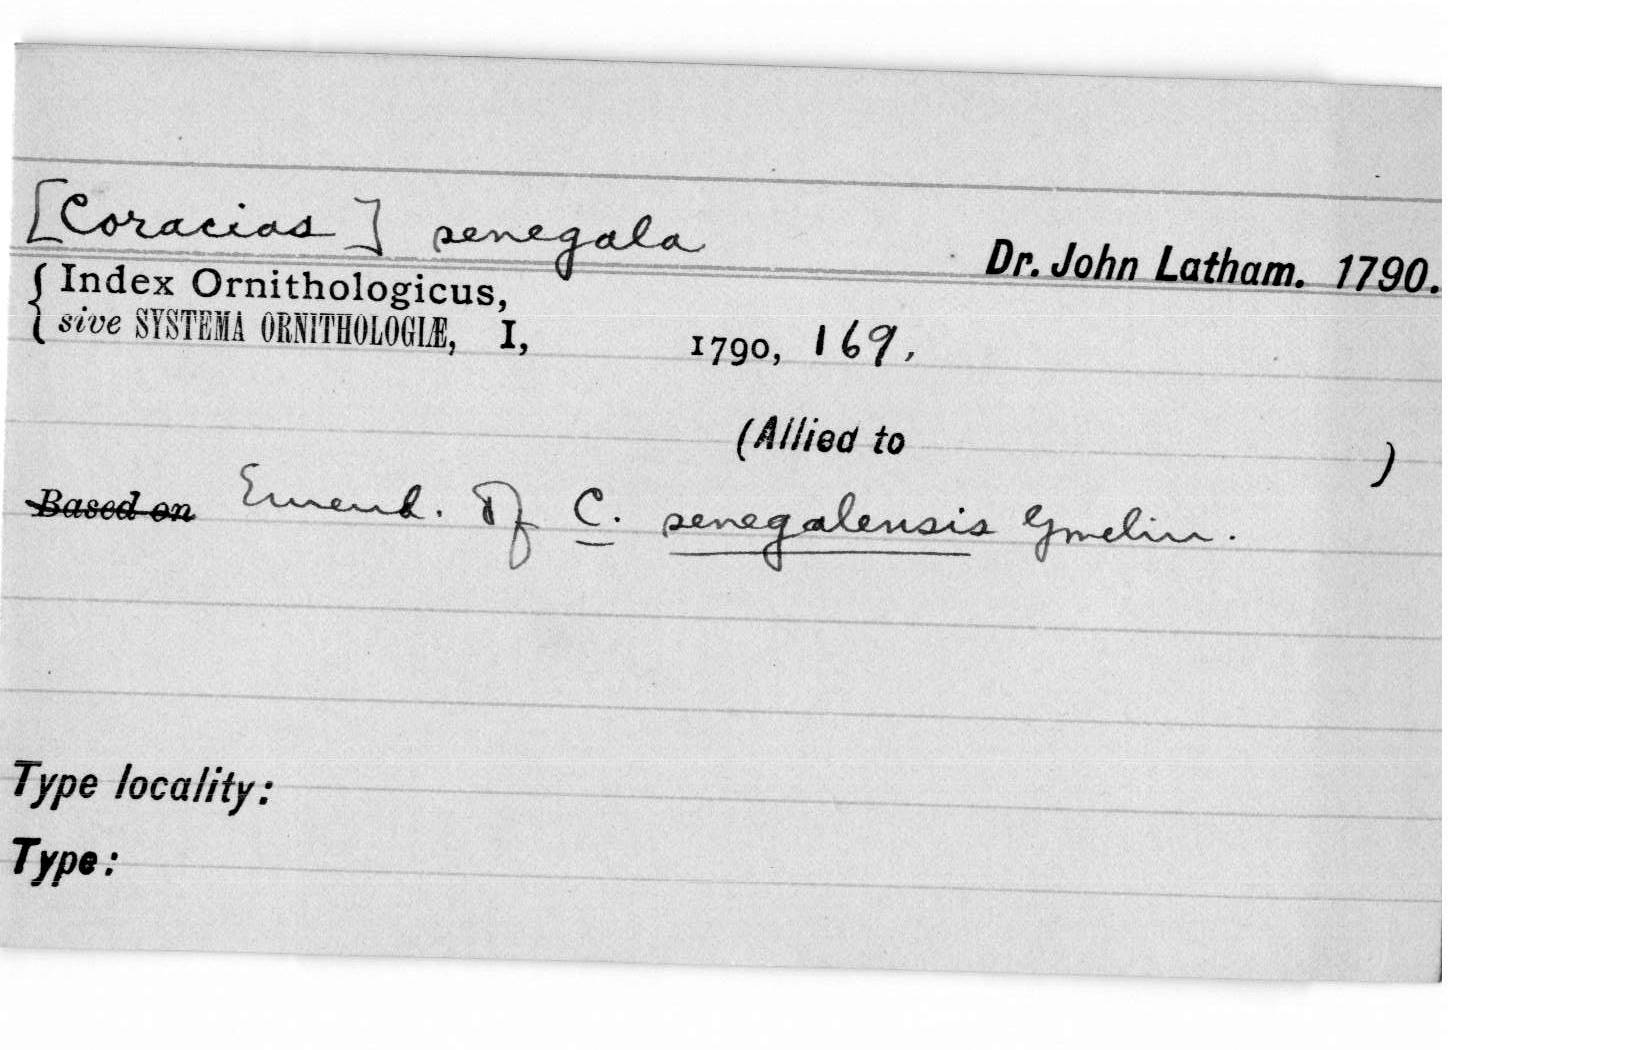 [Coracias] senegala
Dr. John Latham. 1790.
{ Index Ornithologicus,
sive SYSTEMA ORNITHOLOGIÆ, I, 1790, 169.
(Allied to )
Based on Emend. Of C. senegalensis Gmelin.
Type locality:
Type: